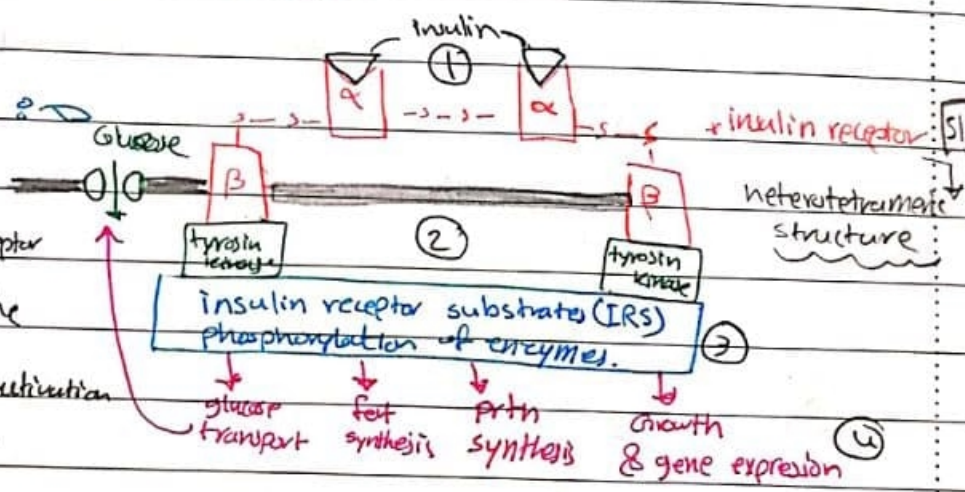 insulin
①
α
α
s - s
- s - s -
s - s
+ insulin receptor
SI
Glucose
β
β
heterotetrameric
structure
tyrosin
kinase
②
tyrosin
kinase
ptor
insulin receptor substrates (IRS)
phosphorylation of enzymes.
③
glucose
transport
fat
synthesis
prtn
synthesis
Growth
& gene expresion
④